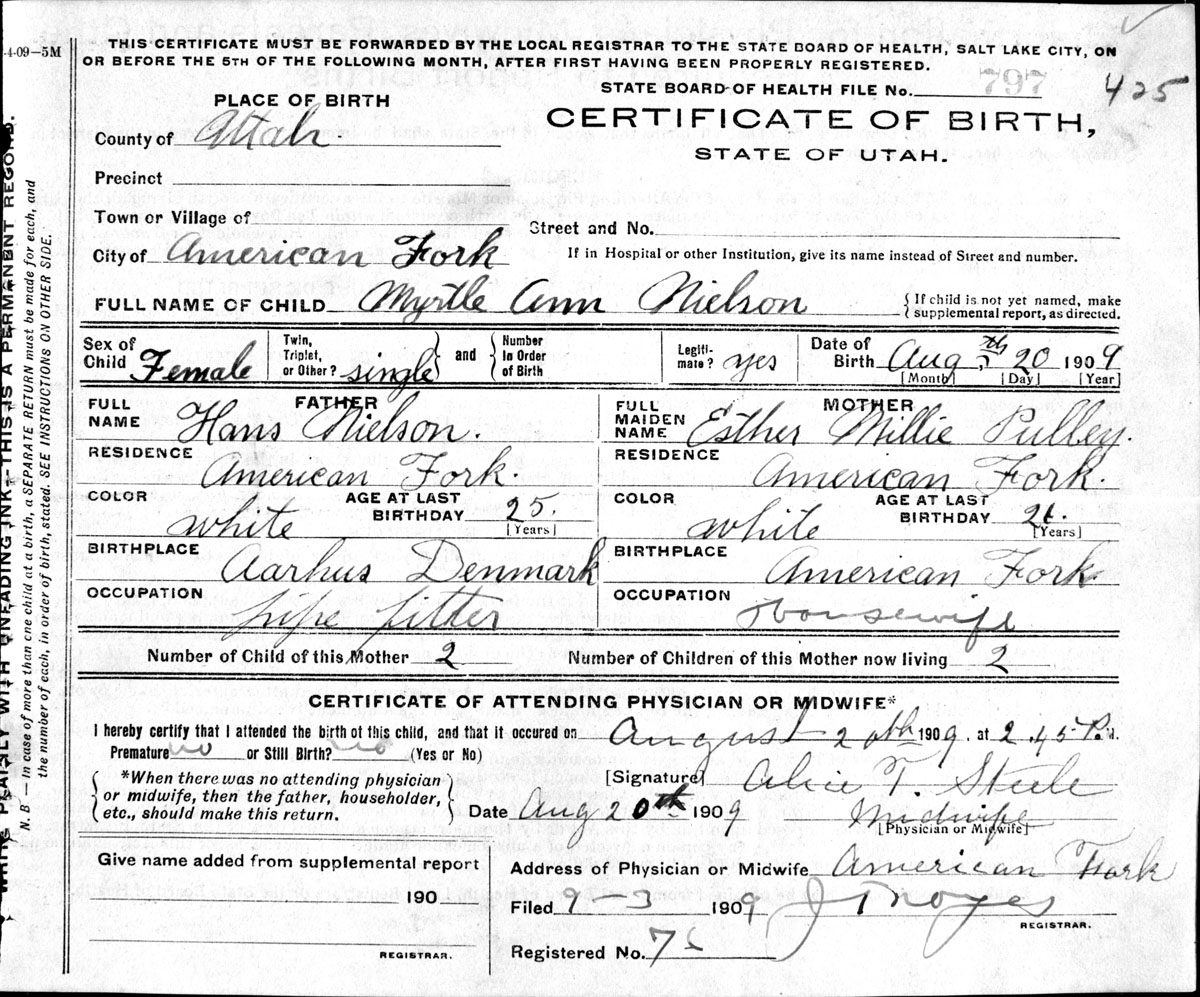 4-09—5M
THIS CERTIFICATE MUST BE FORWARDED BY THE LOCAL REGISTRAR TO THE STATE BOARD OF HEALTH, SALT LAKE CITY, ON
OR BEFORE THE 5TH OF THE FOLLOWING MONTH, AFTER FIRST HAVING BEEN PROPERLY REGISTERED.
STATE BOARD OF HEALTH FILE No. 797 425
PLACE OF BIRTH
CERTIFICATE OF BIRTH,
STATE OF UTAH.
County of Utah.
Precinct
Town or Village of
Street and No.
City of American Fork
If in Hospital or other Institution, give its name instead of Street and number.
FULL NAME OF CHILD Myrtle Ann Nielson
{If child is not yet named, make
supplemental report, as directed.
Sex of Child Female
Twin, Triplet, or Other? single
and
Number in Order of Birth
Legiti-mate? yes
Date of Birth Aug, 20th 1909
[Month] [Day] [Year]
FATHER
FULL NAME Hans Nielson.
RESIDENCE American Fork.
COLOR white
AGE AT LAST BIRTHDAY 25.
[Years]
BIRTHPLACE Aarhus Denmark
OCCUPATION pipe fitter
MOTHER
FULL MAIDEN NAME Esther Millie Pulley.
RESIDENCE American Fork.
COLOR white
AGE AT LAST BIRTHDAY 21.
[Years]
BIRTHPLACE American Fork.
OCCUPATION Housewife
Number of Child of this Mother 2
Number of Children of this Mother now living 2
CERTIFICATE OF ATTENDING PHYSICIAN OR MIDWIFE*
I hereby certify that I attended the birth of this child, and that it occured on August 20th 1909, at 2.45 P.M.
Premature no or Still Birth? no (Yes or No)
*When there was no attending physician
or midwife, then the father, householder,
etc., should make this return.
[Signature] Alice T. Steele
Date Aug 20th 1909
Midwife
[Physician or Midwife]
Give name added from supplemental report
190
REGISTRAR.
Address of Physician or Midwife American Fork
Filed 9-3 1909
J T Noyes
REGISTRAR.
Registered No.
WRITE PLAINLY WITH UNFADING INK—THIS IS A PERMANENT RECORD.
N. B—In case of more than one child at a birth, a SEPARATE RETURN must be made for each, and
the number of each, in order of birth, stated. SEE INSTRUCTIONS ON OTHER SIDE.